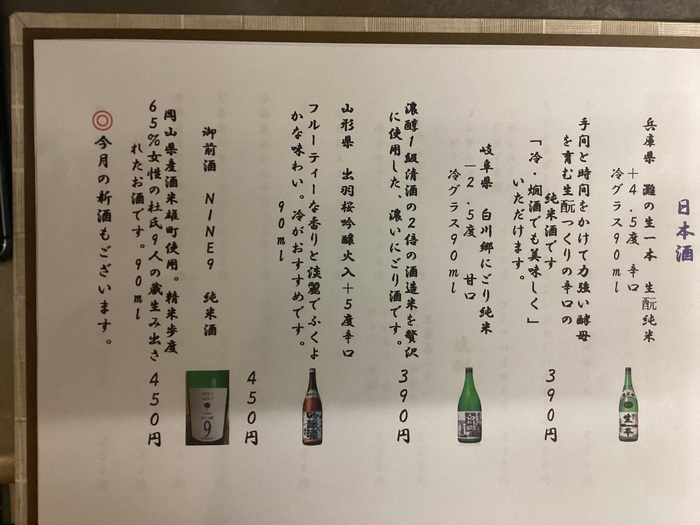 日本酒
兵庫県 灘の生一本 生酛純米
+4.5度 辛口
冷グラス90ml
手間と時間をかけて力強い酵母
を育む生酛つくりの辛口の
純米酒です
「冷・燗酒でも美味しく」
いただけます。
390円
岐阜県 白川郷にごり純米
−2.5度 甘口
冷グラス90ml
濃醇1級清酒の2倍の酒造米を贅沢
に使用した、濃いにごり酒です。
390円
山形県 出羽桜吟醸火入+5度辛口
フルーティーな香りと淡麗でふくよ
かな味わい。冷がおすすめです。
90ml
450円
御前酒 NINE9 純米酒
岡山県産酒米雄町使用。精米歩度
65%女性の杜氏9人の蔵生み出さ
れたお酒です。90ml
450円
◎今月の新酒もございます。
生一本
白川郷
吟醸酒
9